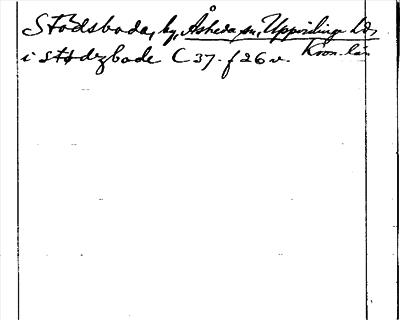 Stödsboda, by, Åsheda sn, Uppvidinge hd,
Kron. län
i stødzbode C 37. f 26 v.